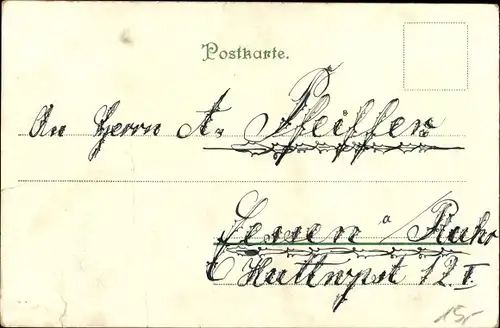 Postkarte.
An Herrn A. Pfeiffer
Essen a/Ruhr
12 I.
15,-